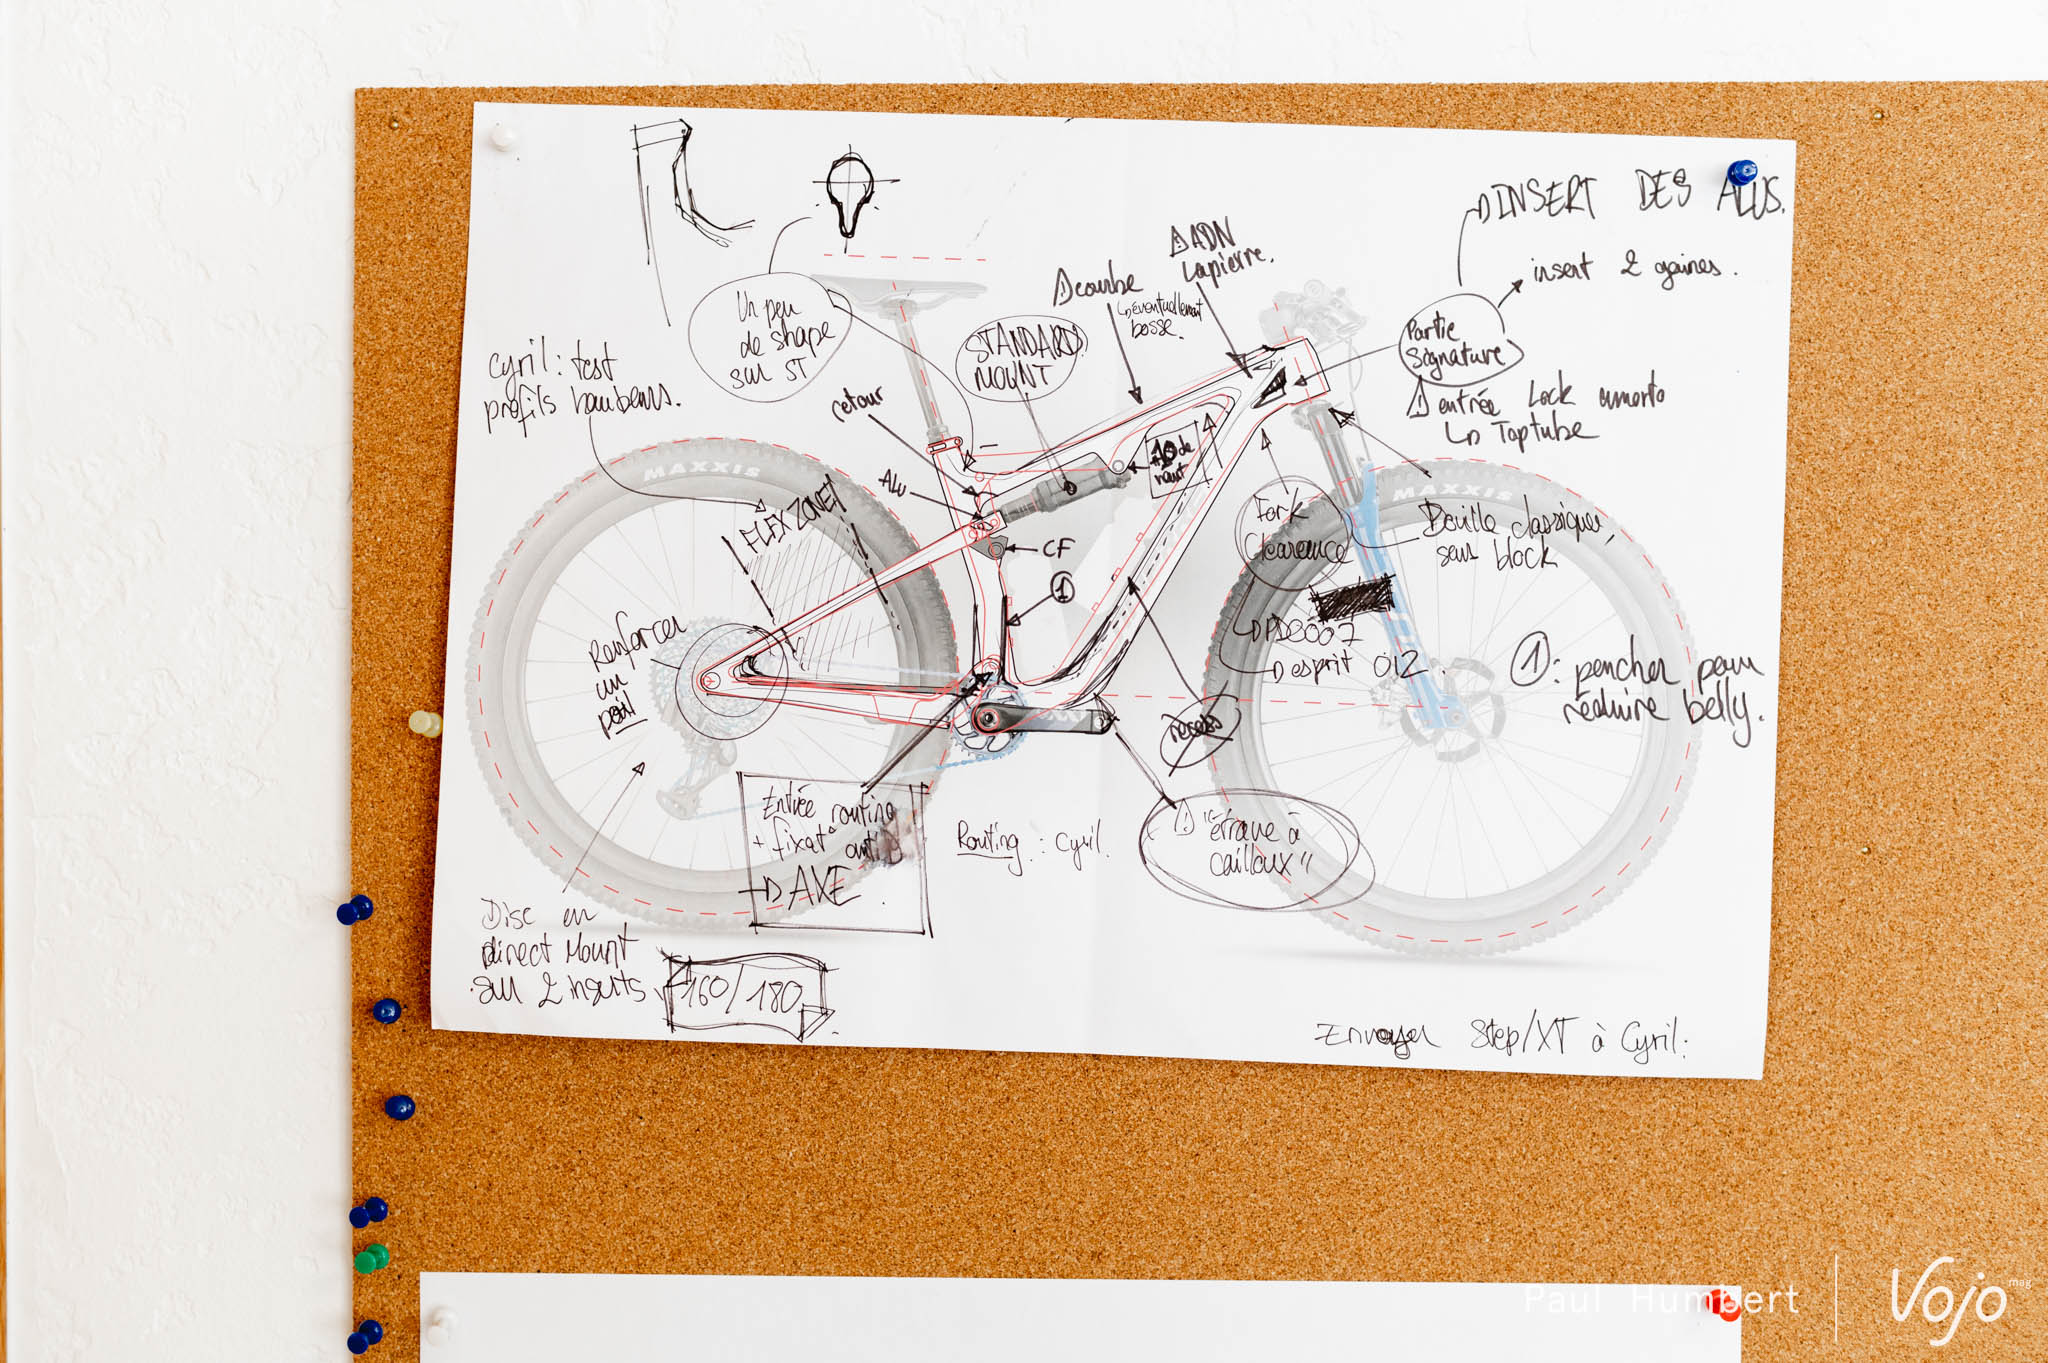 INSERT DES ALUS.
insert 2 gaines.
ADN
Lapierre.
courbe
éventuellement
bosse.
Un peu
de shape
sur ST
STANDARD
MOUNT
Partie
Signature
entrée Lock remoto
Toptube
Cyril: test
profils haubans.
retour
ALU
10 de
haut
MAXXIS
MAXXIS
FLEX ZONE
CF
1
Fork
Clearence
Douille classique,
sans block
PD8007
esprit OIZ.
Renforcer
un
peu
1: pencher pour
réduire belly.
recess
Entrée routing
+ fixat° anti
AXE.
Routing : Cyril.
"étrave à
cailloux"
Disc en
direct Mount
sur 2 inserts
160/180
Envoyer Step/XT à Cyril.
Paul Humbert
Vojo mag